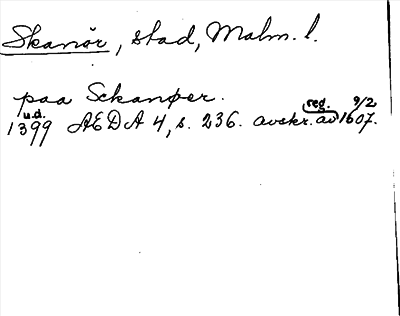 Skanör, stad, Malm. l.
paa Sckanøer.
u.d. reg. 9/2
1399 AEDA 4, s. 236. avskr. av 1607.